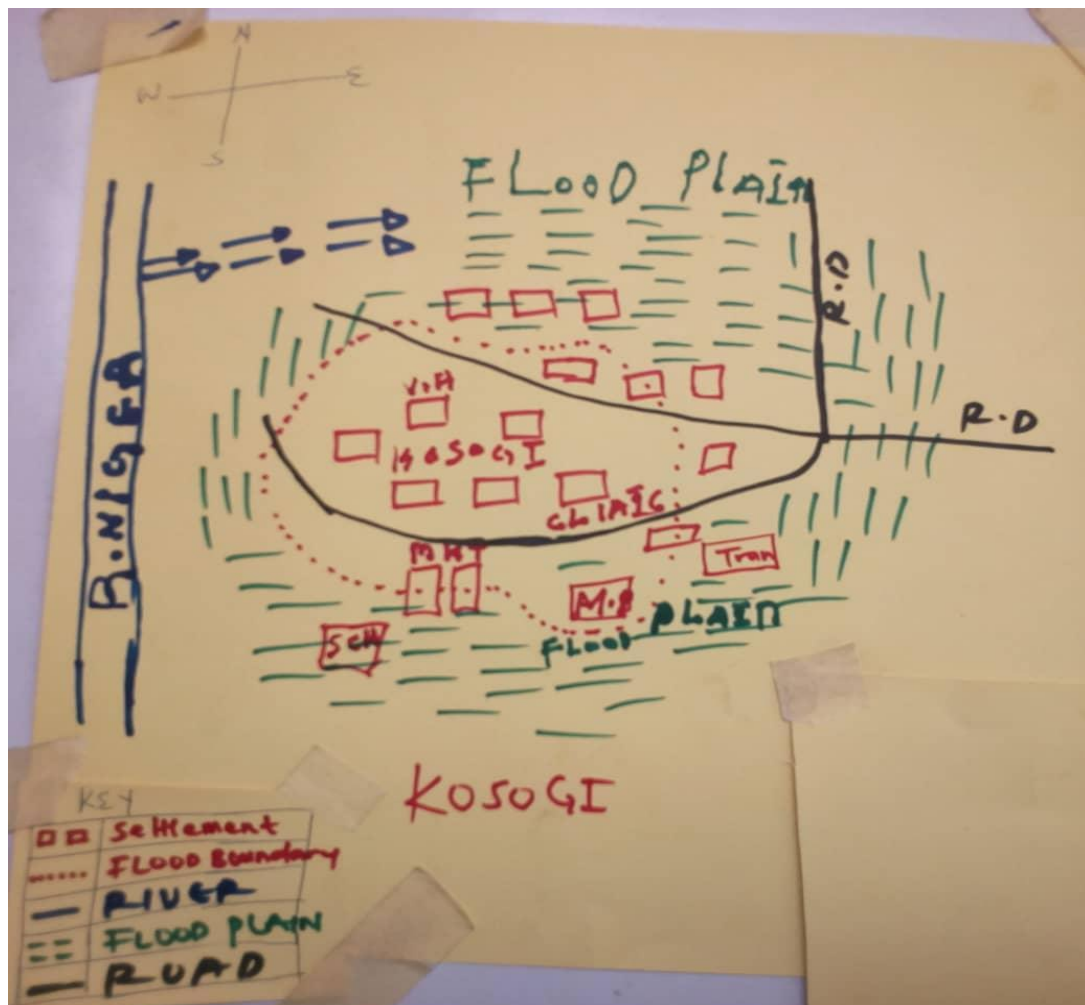 N
W E
S
FLOOD PLAIN
R.D
R.D
R.NIGER
V.H
KOSOGI
CLINIC
MKT
Tran
M.P
SCH
FLOOD PLAIN
KOSOGI
KEY
Settlement
FLOOD Boundary
RIVER
FLOOD PLAIN
ROAD